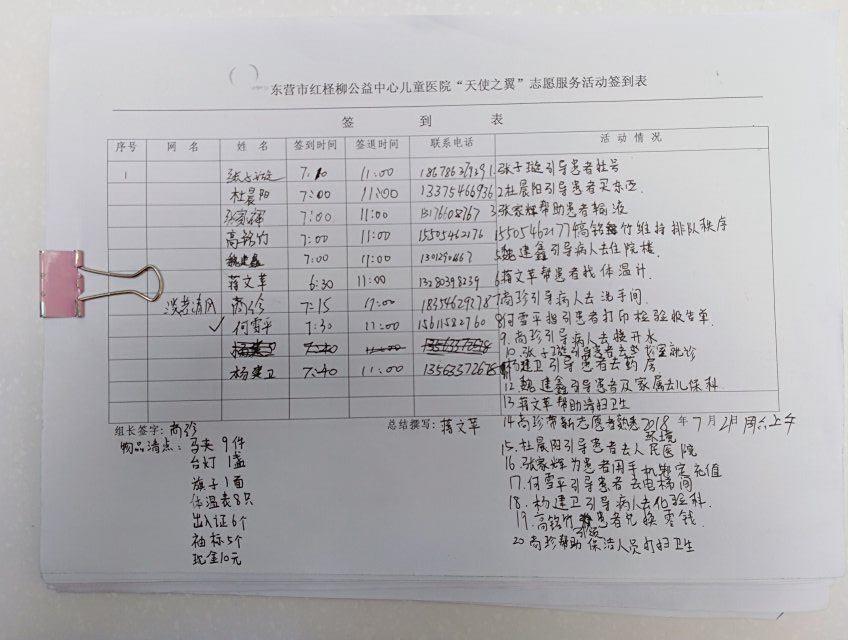 东营市红柽柳公益中心儿童医院“天使之翼”志愿服务活动签到表
签 到 表
序号 网 名 姓 名 签到时间 签退时间 联系电话 活 动 情 况
1 张子璇 7:10 11:00 1.张子璇引导患者挂号
杜晨阳 7:00 11:00 13375466936 2杜晨阳引导患者买东西.
张家辉 7:00 11:00 3张家辉帮助患者输液
高铭竹 7:00 11:00 15505462176 高铭竹维持排队秩序
魏建鑫 7:00 11:00 5魏建鑫引导病人去住院楼.
蒋文革 6:30 11:00 13280398239 6蒋文革帮患者找体温计.
尚珍 7:15 11:00 18354629278 7尚珍引导病人去洗手间.
何雪平 7:30 11:00 15611582760 8何雪平指引患者打印检验报告单.
9.尚珍引导病人去接开水
10.张子璇引导患者去就诊
杨建卫 7:40 11:00 13563572678 杨建卫引导患者去药房
12魏建鑫引导患者及家属去儿保科.
13蒋文革帮助清扫卫生
组长签字:尚珍 总结撰写:蒋文革 14尚珍带新志愿者熟悉环境
2018年7月21日周六上午
物品清点:马夹9件
台灯1盏
旗子1面
体温表8只
出入证6个
袖标5个
现金10元
15.杜晨阳引导患者去人民医院
16.张家辉为患者用手机绑定充值
17.何雪平引导患者去电梯间
18.杨建卫引导病人去化验科.
19.高铭竹引领患者兑换零钱.
20尚珍帮助保洁人员打扫卫生